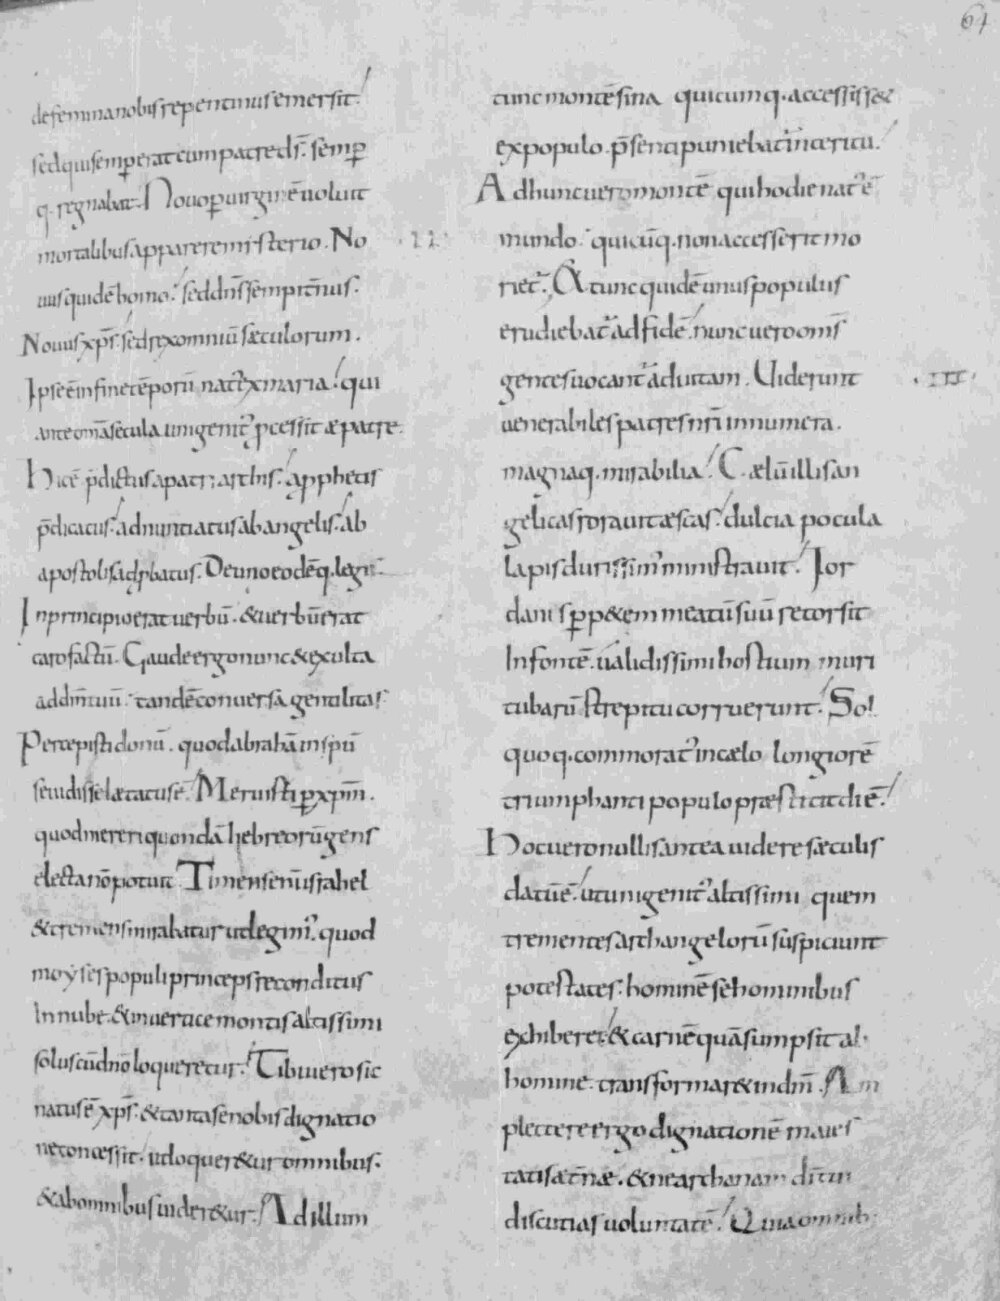 64
defemina nobis repentinus emersit.
sed qui semꝑ erat cum patre ds̄. semꝑ
q. regnabat. Nouo ꝑ uirginē uoluit
mortalibus apparere misterio. No
uus quidē homo. sed dn̄s sempit̄nus.
Nouus xp̄s. sed rex omniū sæculorum.
Ipse ē in fine tēporū natꝰ ex maria. qui
ante om̄a secula unigenitꝰ p̄cessit æ patre.
Hic ē p̄dictus a patriarchis. a pphetis
p̄dicatus. adnuntiatus ab angelis. ab
apostolis adp̱batus. De uno eodēq. legit̄
In principio erat uerbū. & uerbū erat
caro factū. Gaude ergo nunc & exulta
addm̄ tuū. tandē conuersa gentilitas
Percepisti donū. quod abrahā in sp̄u
se uidisse lætatus ē. Meruisti ꝑ xp̄m.
quod mereri quondā hebreorū gens
electa nō potuit. Timens enī israhel
& tremens mirabatur ut legimꝰ. quod
moyses populi princeps reconditus
In nube. & in uertice montis altissimi
solus cū dn̄o loqueretur. Tibi uero sic
natus ē xp̄s. & tanta se nobis dignatio
ne concessit. ut loquer&ur omnibus.
& ab omnibus uider&ur. Ad illum
tunc montē sina quicumq. accessiss&
ex populo. p̄senti puniebatꝰ interitu.
Ad hunc uero montē qui hodie natꝰ ē
.II.
mundo. quicūq. non accesserit mo
riet̄. & tunc quidē unus populus
erudiebatꝰ ad fidē. nunc uero om̄s
gentes uocantꝰ ad uitam. Uiderunt
.III.
uenerabiles patres nr̄i innumera.
magnaq. mirabilia. Cælū illis an
gelicas rorauit æscas. dulcia pocula
lapis durissimꝰ ministrauit. Ior
danis ꝑp&em meatū suū retorsit
In fontē. ualidissimi hostium muri
tubarū strepitu corruerunt. Sol
quoq. commoratꝰ in cælo longiorē
triumphanti populo præstitit diē.
Hoc uero nullis antea uidere sæculis
datū ē. ut unigenitꝰ altissimi quem
trementes archangelorū suspiciunt
potestates. hominē se hominibus
exhiberet. & carnē quā sumpsit ab
homine. transformar& in dm̄. Am
plectere ergo dignationē maies
tatis æt̄næ. & ne archanam dūtin
discutias uoluntatē. Quia omnib.